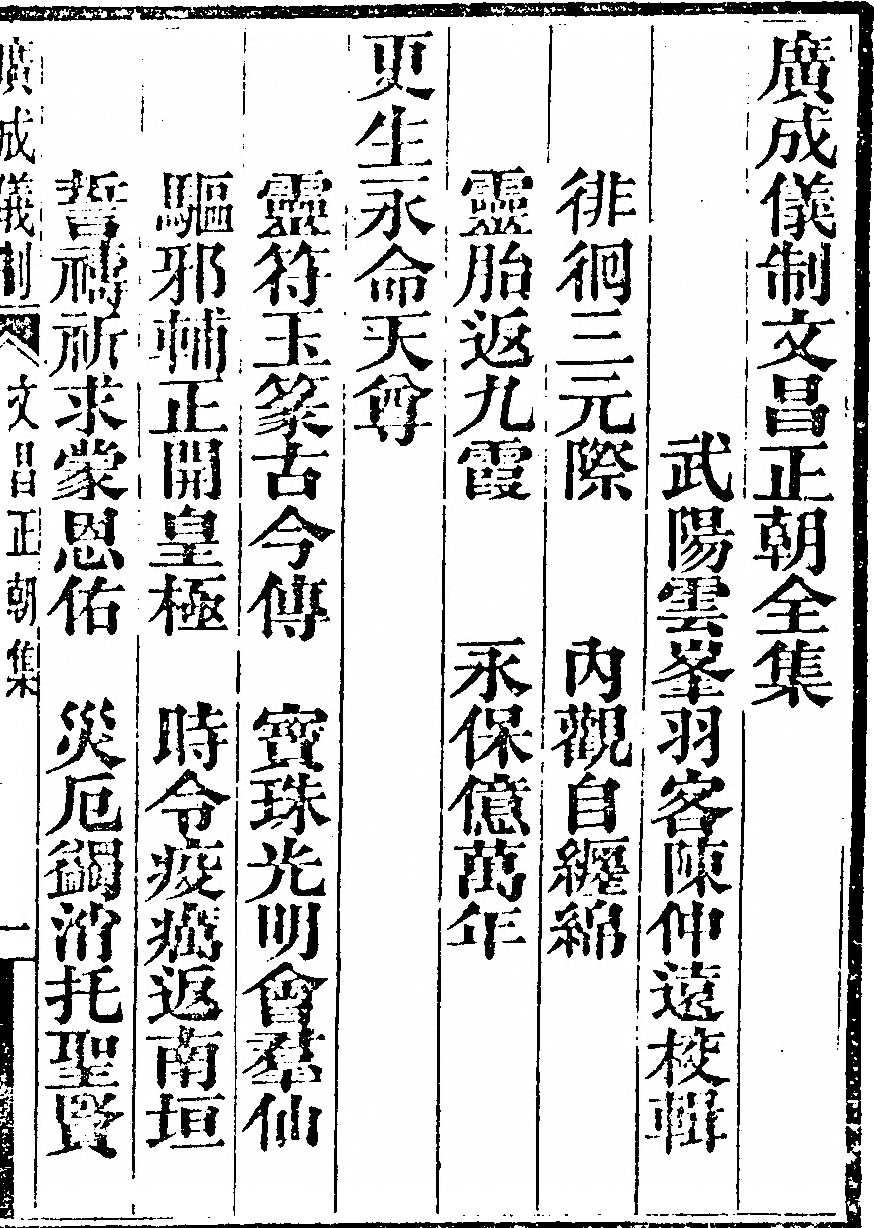 廣成儀制文昌正朝全集
武陽雲峯羽客陳仲遠校輯
徘徊三元際　內觀自纏綿
靈胎返九霞　永保億萬年
更生永命天尊
靈符玉篆古今傳　寶珠光明會羣仙
驅邪輔正開皇極　時令疫癘返南垣
誓禱祈求蒙恩佑　災厄蠲消托聖賢
廣成儀制　文昌正朝集　一